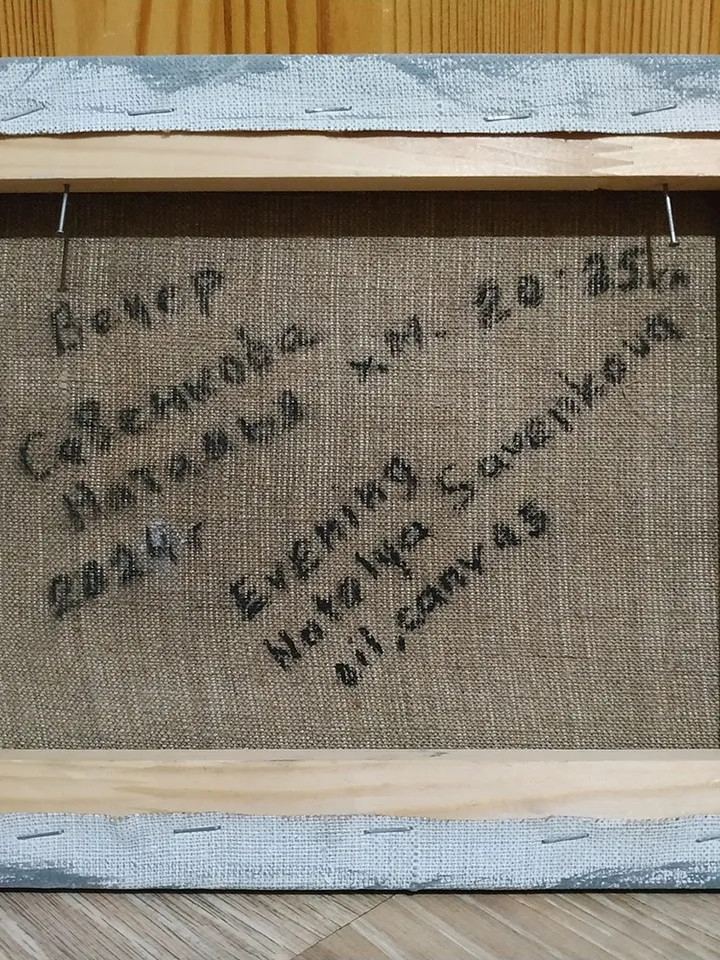 Вечер
х.м. 20:35см
Савенкова
Наталья
2024г
Evening
Natalya Savenkova
oil, canvas